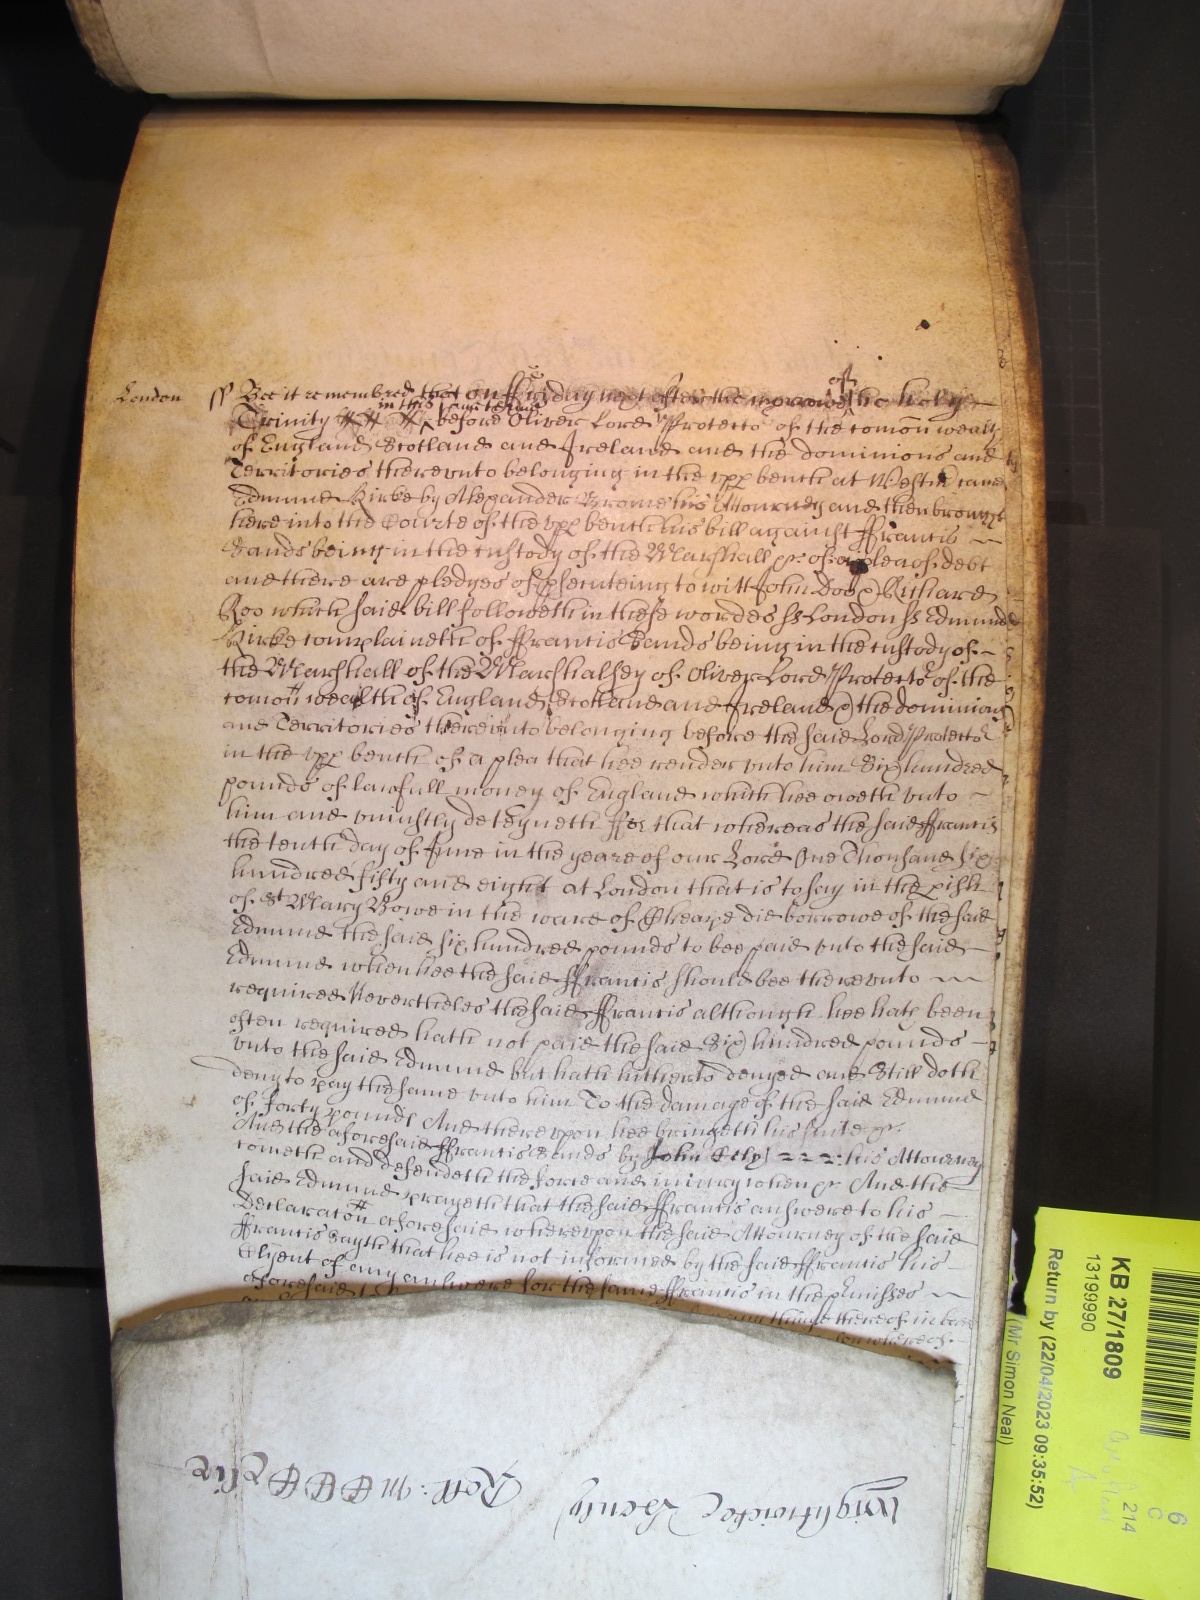 London ss Bee it remembred that on ffryday next after the morrow of the holy
Trinity in this same terme before Oliver Lord Protector of the comon wealth
of England Scotland and Ireland and the dominions and
Territories thereunto belonging in the upp bench at Westm came
Edmund Kirke by Alexander Brome his Attourney and then brought
here into the Courte of the upp bench his bill against ffrancis
Sands being in the custody of the Marshall &c of a plea of debt
and there are pledges of prosecuteing to witt John Doo & Richard
Roo which said bill followeth in these wordes ss London ss Edmund
Kirke complaineth of ffrancis Sands being in the custody of
the Marshall of the Marshalsey of Oliver Lord Protector of the
comon wealth of England Scotland and Ireland & the dominions
and Territories thereunto belonging before the said Lord Protector
in the upp bench of a plea that hee render unto him Six hundred
pounds of lawfull money of England which hee oweth unto
him and uniustly deteyneth ffor that whereas the said ffrancis
the tenth day of June in the yeare of our Lord One Thousand Six
hundred fifty and eight at London that is to say in the pish
of St Mary Bowe in the ward of Cheape did borrowe of the said
Edmund the said six hundred pounds to bee paid unto the said
Edmund when hee the said ffrancis should bee thereunto
required Neverthelés the said ffrancis although hee hath been
often required hath not paid the said Six hundred pounds
unto the said Edmund but hath hitherto denyed and Still doth
deny to pay the same unto him To the damage of the said Edmund
of forty pounds And thereupon hee bringeth his suite &c.
And the aforesaid ffrancis Sands by John his Attourney
cometh and defendeth the force and iniury when &c And the
said Edmund prayeth that the said ffrancis answere to his
Declaracon aforesaid whereupon the said Attourney of the said
ffrancis sayth that hee is not informed by the said ffrancis his
Clyent of any answere for the same ffrancis in the pmisses
aforesaid
thinge thereof in
whereof
Wightwicke & Henly Roll:
KB 27/1809
13199990
Return by (22/04/2023 09:35:52)
(Mr Simon Neal)
6
C
214